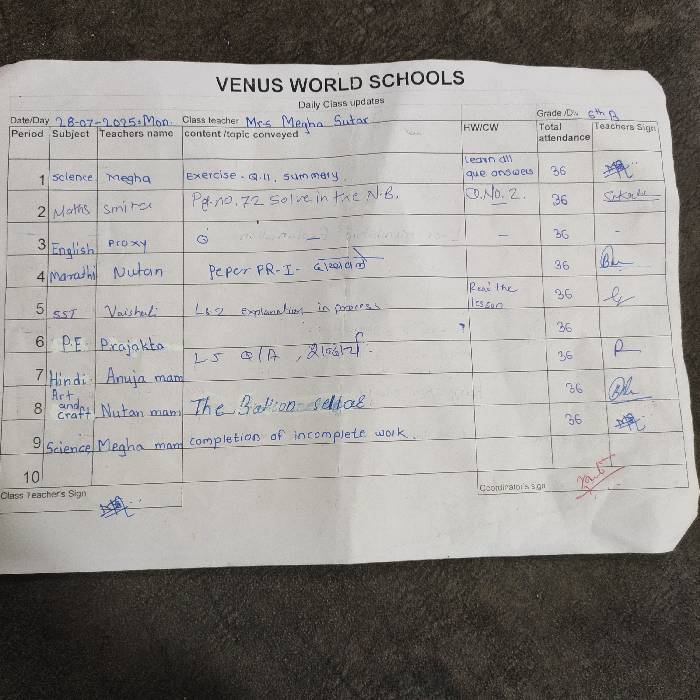 VENUS WORLD SCHOOLS
Daily Class updates
Date/Day 28-07-2025. Mon. Class teacher Mrs Megha Sutar Grade /Div 6th B
Period Subject Teachers name content /topic conveyed HW/CW Total attendance Teachers Sign
1 Science Megha Exercise - Q.11, Summary. Learn all que answers 36
2 Maths Smita Pg.no. 72 Solve in the N.B. Q.No. 2. 36
3 English Proxy — – 36 -
4 Marathi Nutan Peper PR-I- 36
5 SST Vaishali Ls 2 explanation in process Read the lesson 36
6 P.E Prajakta 36
7 Hindi Anuja mam L5 Q/A , शब्दार्थ. 36
8 Art and Craft Nutan mam The 36
9 Science Megha mam completion of incomplete work. 36
10
Class Teacher's Sign Coordinator's sign